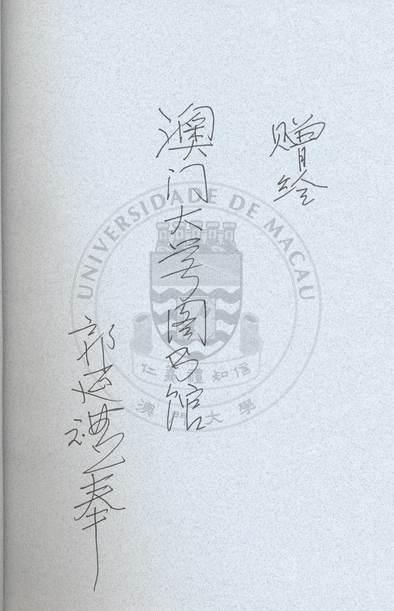 赠给
澳门大学图书馆
郭延礼奉
UNIVERSIDADE DE MACAU
仁義禮知信
澳門大學